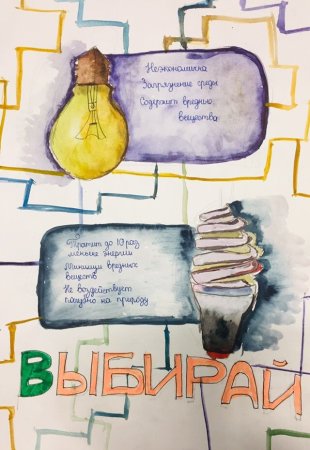 Неэкономична
Загрязнение среды
Содержит вредные
вещества
Тратит до 10 раз
меньше энергии
Минимум вредных
веществ
Не воздействует
пагубно на природу
ВЫБИРАЙ